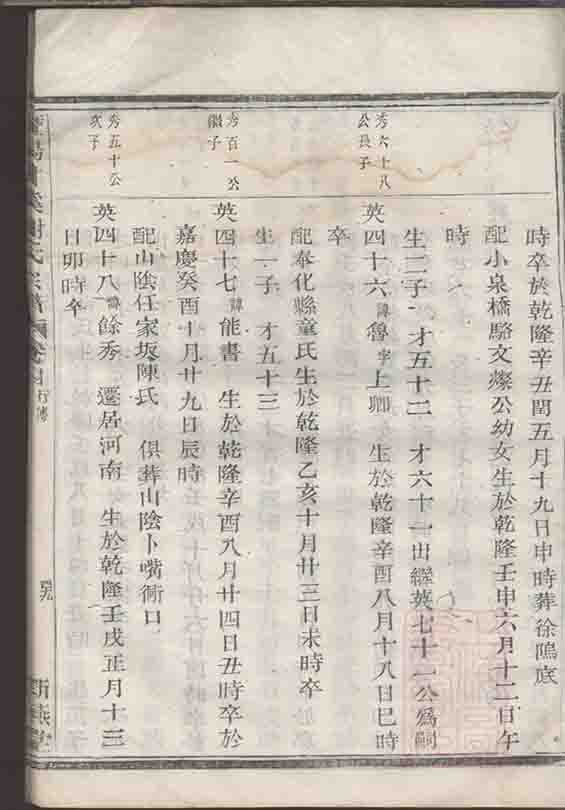 時卒於乾隆辛丑閏五月十九日申時葬徐隖底
配小泉橋駱文燦公幼女生於乾隆壬申六月十二日午
時
生二子 才五十二 才六十一出繼英七十一公爲嗣
秀六十八
公長子
英四十六諱魯字上卿 生於乾隆辛酉八月十八日巳時
卒
配奉化縣童氏生於乾隆乙亥十月廿三日未時卒
生一子 才五十三
秀百一公
繼子
英四十七諱能書 生於乾隆辛酉八月廿四日丑時卒於
嘉慶癸酉十月廿九日辰時
配山陰任家坂陳氏 俱葬山陰卜嘴衕口
秀五十公
次子
英四十八諱餘秀 遷居河南 生於乾隆壬戌正月十三
日卯時卒
氏宗譜 行傳